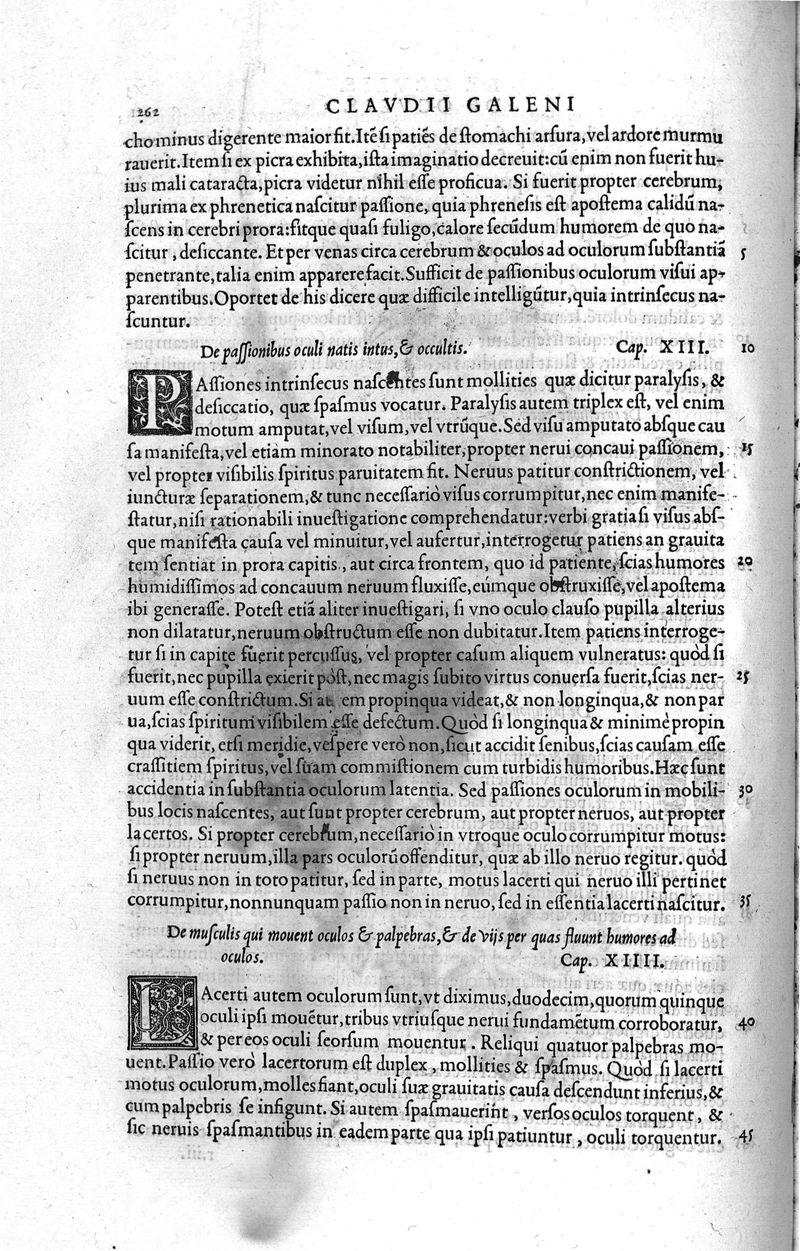 262 CLAVDII GALENI
cho minus digerente maior fit. Itē si patiēs de stomachi arsura, vel ardore murmu
rauerit. Item si ex picra exhibita, ista imaginatio decreuit: cū enim non fuerit hu-
ius mali cataracta, picra videtur nihil esse proficua. Si fuerit propter cerebrum,
plurima ex phrenetica nascitur passione, quia phrenesis est apostema calidū na-
scens in cerebri prora: fitque quasi fuligo, calore secūdum humorem de quo na-
scitur, desiccante. Et per venas circa cerebrum & oculos ad oculorum substantiā 5
penetrante, talia enim apparere facit. Sufficit de passionibus oculorum visui ap-
parentibus. Oportet de his dicere quæ difficile intelligūtur, quia intrinsecus na-
scuntur.
De passionibus oculi natis intus, & occultis. Cap. XIII. 10
PAssiones intrinsecus nascentes sunt mollities quæ dicitur paralysis, &
desiccatio, quæ spasmus vocatur. Paralysis autem triplex est, vel enim
motum amputat, vel visum, vel vtrūque. Sed visu amputato absque cau
sa manifesta, vel etiam minorato notabiliter, propter nerui concaui passionem, 15
vel propter visibilis spiritus paruitatem fit. Neruus patitur constrictionem, vel
iuncturæ separationem, & tunc necessariò visus corrumpitur, nec enim manife-
statur, nisi rationabili inuestigatione comprehendatur: verbi gratia si visus abs-
que manifesta causa vel minuitur, vel aufertur, interrogetur patiens an grauita
tem sentiat in prora capitis, aut circa frontem, quo id patiente, scias humores 20
humidissimos ad concauum neruum fluxisse, eúmque obstruxisse, vel apostema
ibi generasse. Potest etiā aliter inuestigari, si vno oculo clauso pupilla alterius
non dilatatur, neruum obstructum esse non dubitatur. Item patiens interroge-
tur si in capite fuerit percussus, vel propter casum aliquem vulneratus: quòd si
fuerit, nec pupilla exierit pòst, nec magis subito virtus conuersa fuerit, scias ner- 25
uum esse constrictum. Si em propinqua videat, & non longinqua, & non par
ua, scias spiritum visibilem esse defectum. Quòd si longinqua & minimè propin
qua viderit, etsi meridie, vespere verò non, sicut accidit senibus, scias causam esse
crassitiem spiritus, vel suam commistionem cum turbidis humoribus. Hæc sunt
accidentia in substantia oculorum latentia. Sed passiones oculorum in mobili- 30
bus locis nascentes, aut sunt propter cerebrum, aut propter neruos, aut propter
lacertos. Si propter cerebrum, necessariò in vtroque oculo corrumpitur motus:
si propter neruum, illa pars oculorū offenditur, quæ ab illo neruo regitur. quòd
si neruus non in toto patitur, sed in parte, motus lacerti qui neruo illi pertinet
corrumpitur, nonnunquam passio non in neruo, sed in essentia lacerti nascitur. 35
De musculis qui mouent oculos & palpebras, & de vijs per quas fluunt humores ad
oculos. Cap. XIIII.
LAcerti autem oculorum sunt, vt diximus, duodecim, quorum quinque
oculi ipsi mouētur, tribus vtriusque nerui fundamētum corroboratur, 40
& per eos oculi seorsum mouentur. Reliqui quatuor palpebras mo-
uent. Passio verò lacertorum est duplex, mollities & spasmus. Quòd si lacerti
motus oculorum, molles fiant, oculi suæ grauitatis causa descendunt inferius, &
cum palpebris se infigunt. Si autem spasmauerint, versos oculos torquent, &
sic neruis spasmantibus in eadem parte qua ipsi patiuntur, oculi torquentur. 45